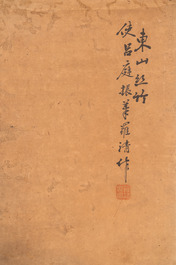 東山絲竹
侯呂庭振筆羅清作